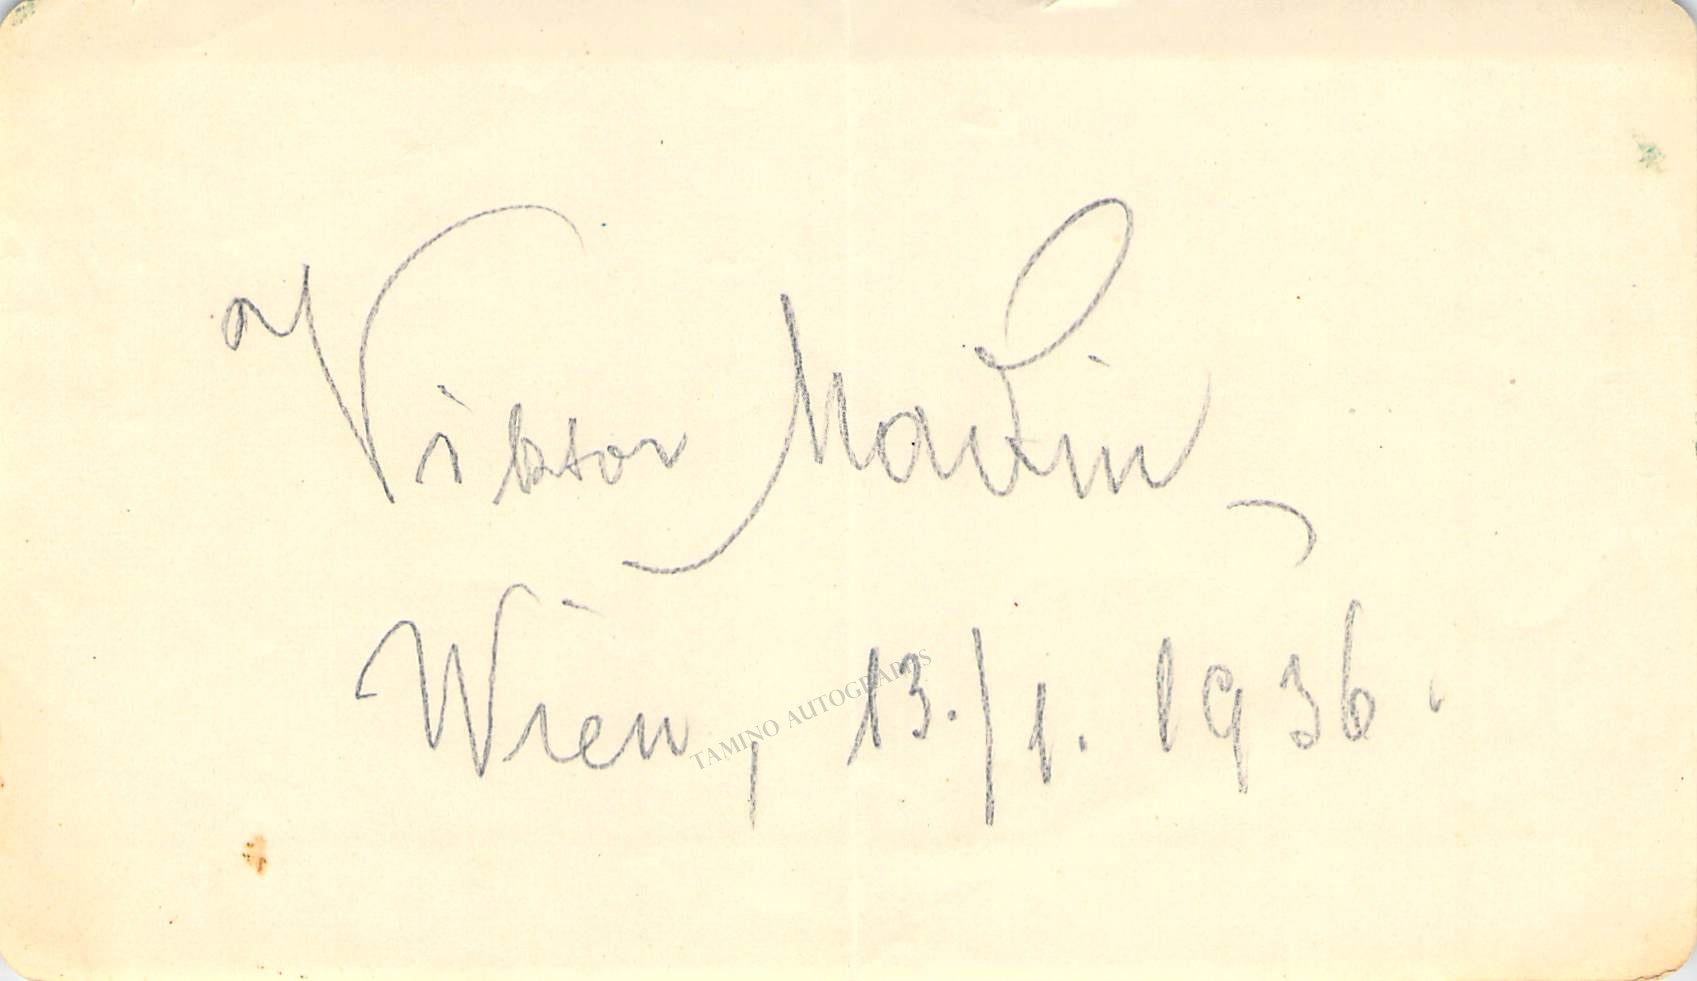 Viktor Madin
Wien, 13./1. 1936.
TAMINO AUTOGRAPHS